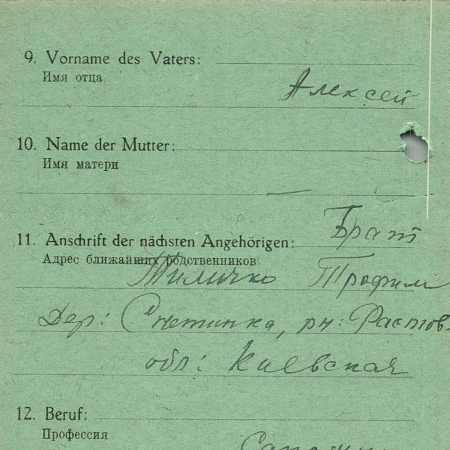 9. Vorname des Vaters:
Имя отца
Алексей
10. Name der Mutter:
Имя матери
11. Anschrift der nächsten Angehörigen: Брат
Адрес ближайших родственников
Тиличко Трофим
Дер: Снетинка, рн: Фастов.
обл: Киевская
12. Beruf:
Профессия